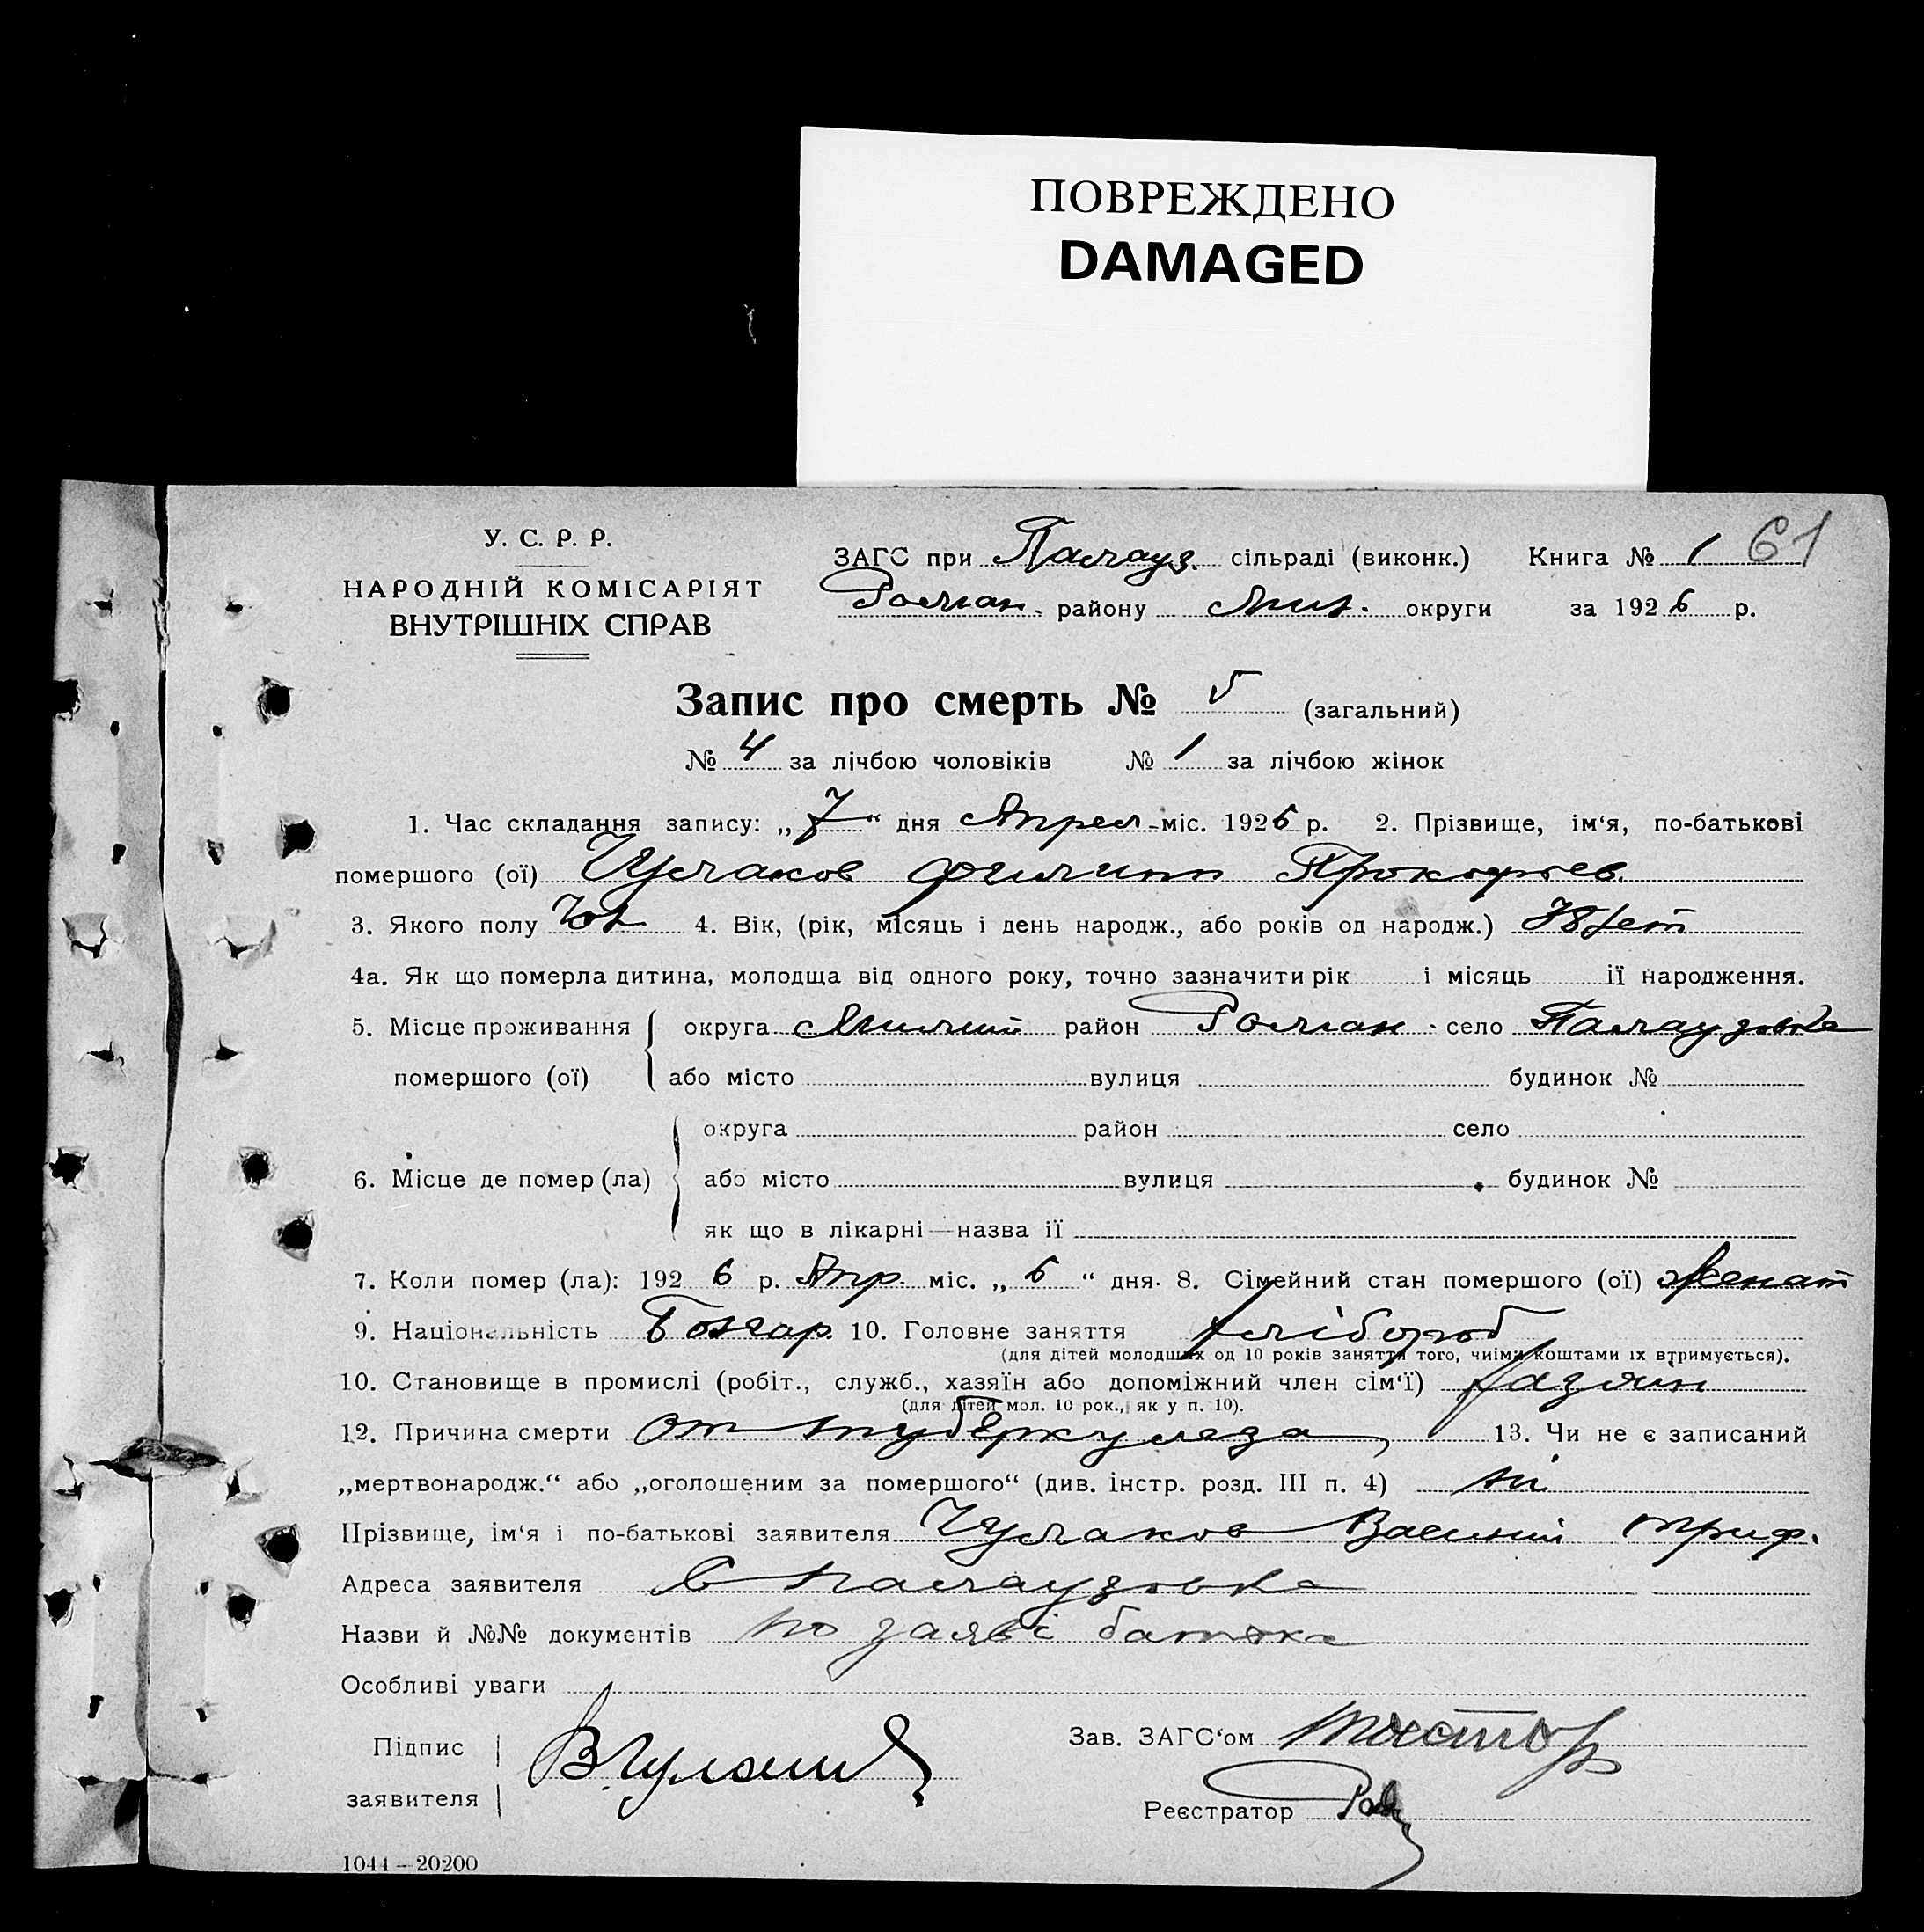 ПОВРЕЖДЕНО
DAMAGED
У. С. Р. Р.
НАРОДНІЙ КОМІСАРІЯТ
ВНУТРІШНІХ СПРАВ
ЗАГС при Палауз. сільраді (виконк.) Книга № 1 61
району округи за 1926 р.
Запис про смерть № 5 (загальний)
№ 4 за лічбою чоловіків № 1 за лічбою жінок
1. Час складання запису: „7“ дня Апрел міс. 1926 р. 2. Прізвище, ім‘я, по-батькові
помершого (ої) Чулаков Филипп Прокофьев.
3. Якого полу Чол 4. Вік, (рік, місяць і день народж., або років од народж.) 78 лет
4а. Як що померла дитина, молодща від одного року, точно зазначити рік і місяць її народження.
5. Місце проживання округа район село Палаузовка
помершого (ої) або місто вулиця будинок №
округа район село
6. Місце де помер (ла) або місто вулиця будинок №
як що в лікарні—назва її
7. Коли помер (ла): 1926 р. Апр. міс. „6“ дня. 8. Сімейний стан помершого (ої) Женат
9. Національність Болгар. 10. Головне заняття хлібороб
(для дітей молодших од 10 років заняття того, чиїми коштами їх втримується).
10. Становище в промислі (робіт., служб., хазяїн або допоміжний член сім‘ї) Хазяин
(для дітей мол. 10 рок., як у п. 10).
12. Причина смерти от туберкулеза 13. Чи не є записаний
„мертвонародж.“ або „оголошеним за помершого“ (див. інстр. розд. III п. 4) ні
Прізвище, ім‘я і по-батькові заявителя Чулаков Василий триф.
Адреса заявителя с Палаузовка
Назви й №№ документів по заяві батька
Особливі уваги
Підпис
заявителя
Зав. ЗАГС‘ом
Реєстратор
1044 – 20200